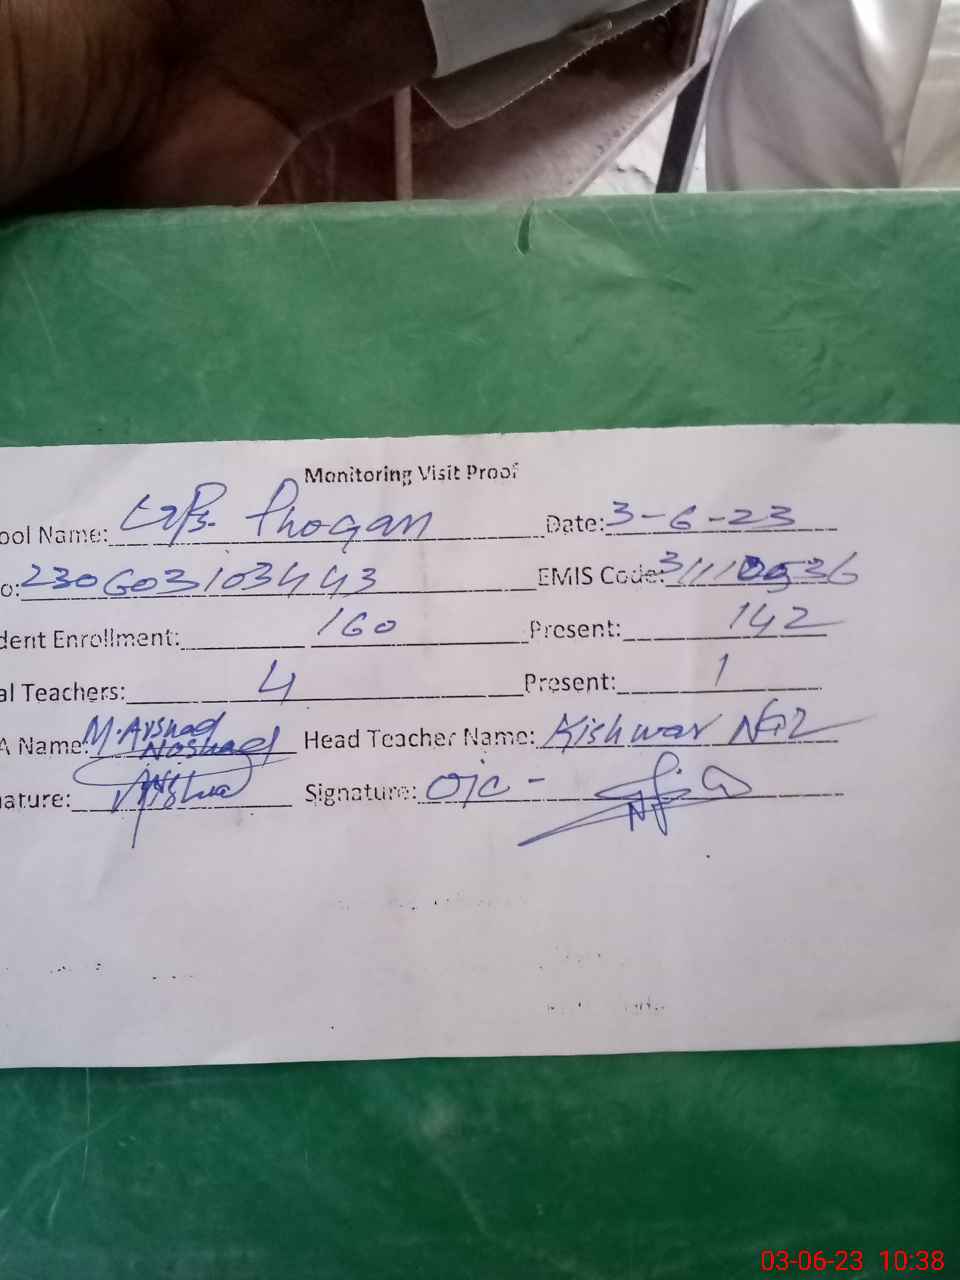 Monitoring Visit Proof
ool Name: GPS Phogan Date: 3-6-23
o: 2306031034443 EMIS Code: 31110536
dent Enrollment: 160 Present: 142
al Teachers: 4 Present: 1
A Name: M. Arshad Noshad Head Teacher Name: Kishwar Naz
nature: Arshad Signature: O/C -
03-06-23 10:38